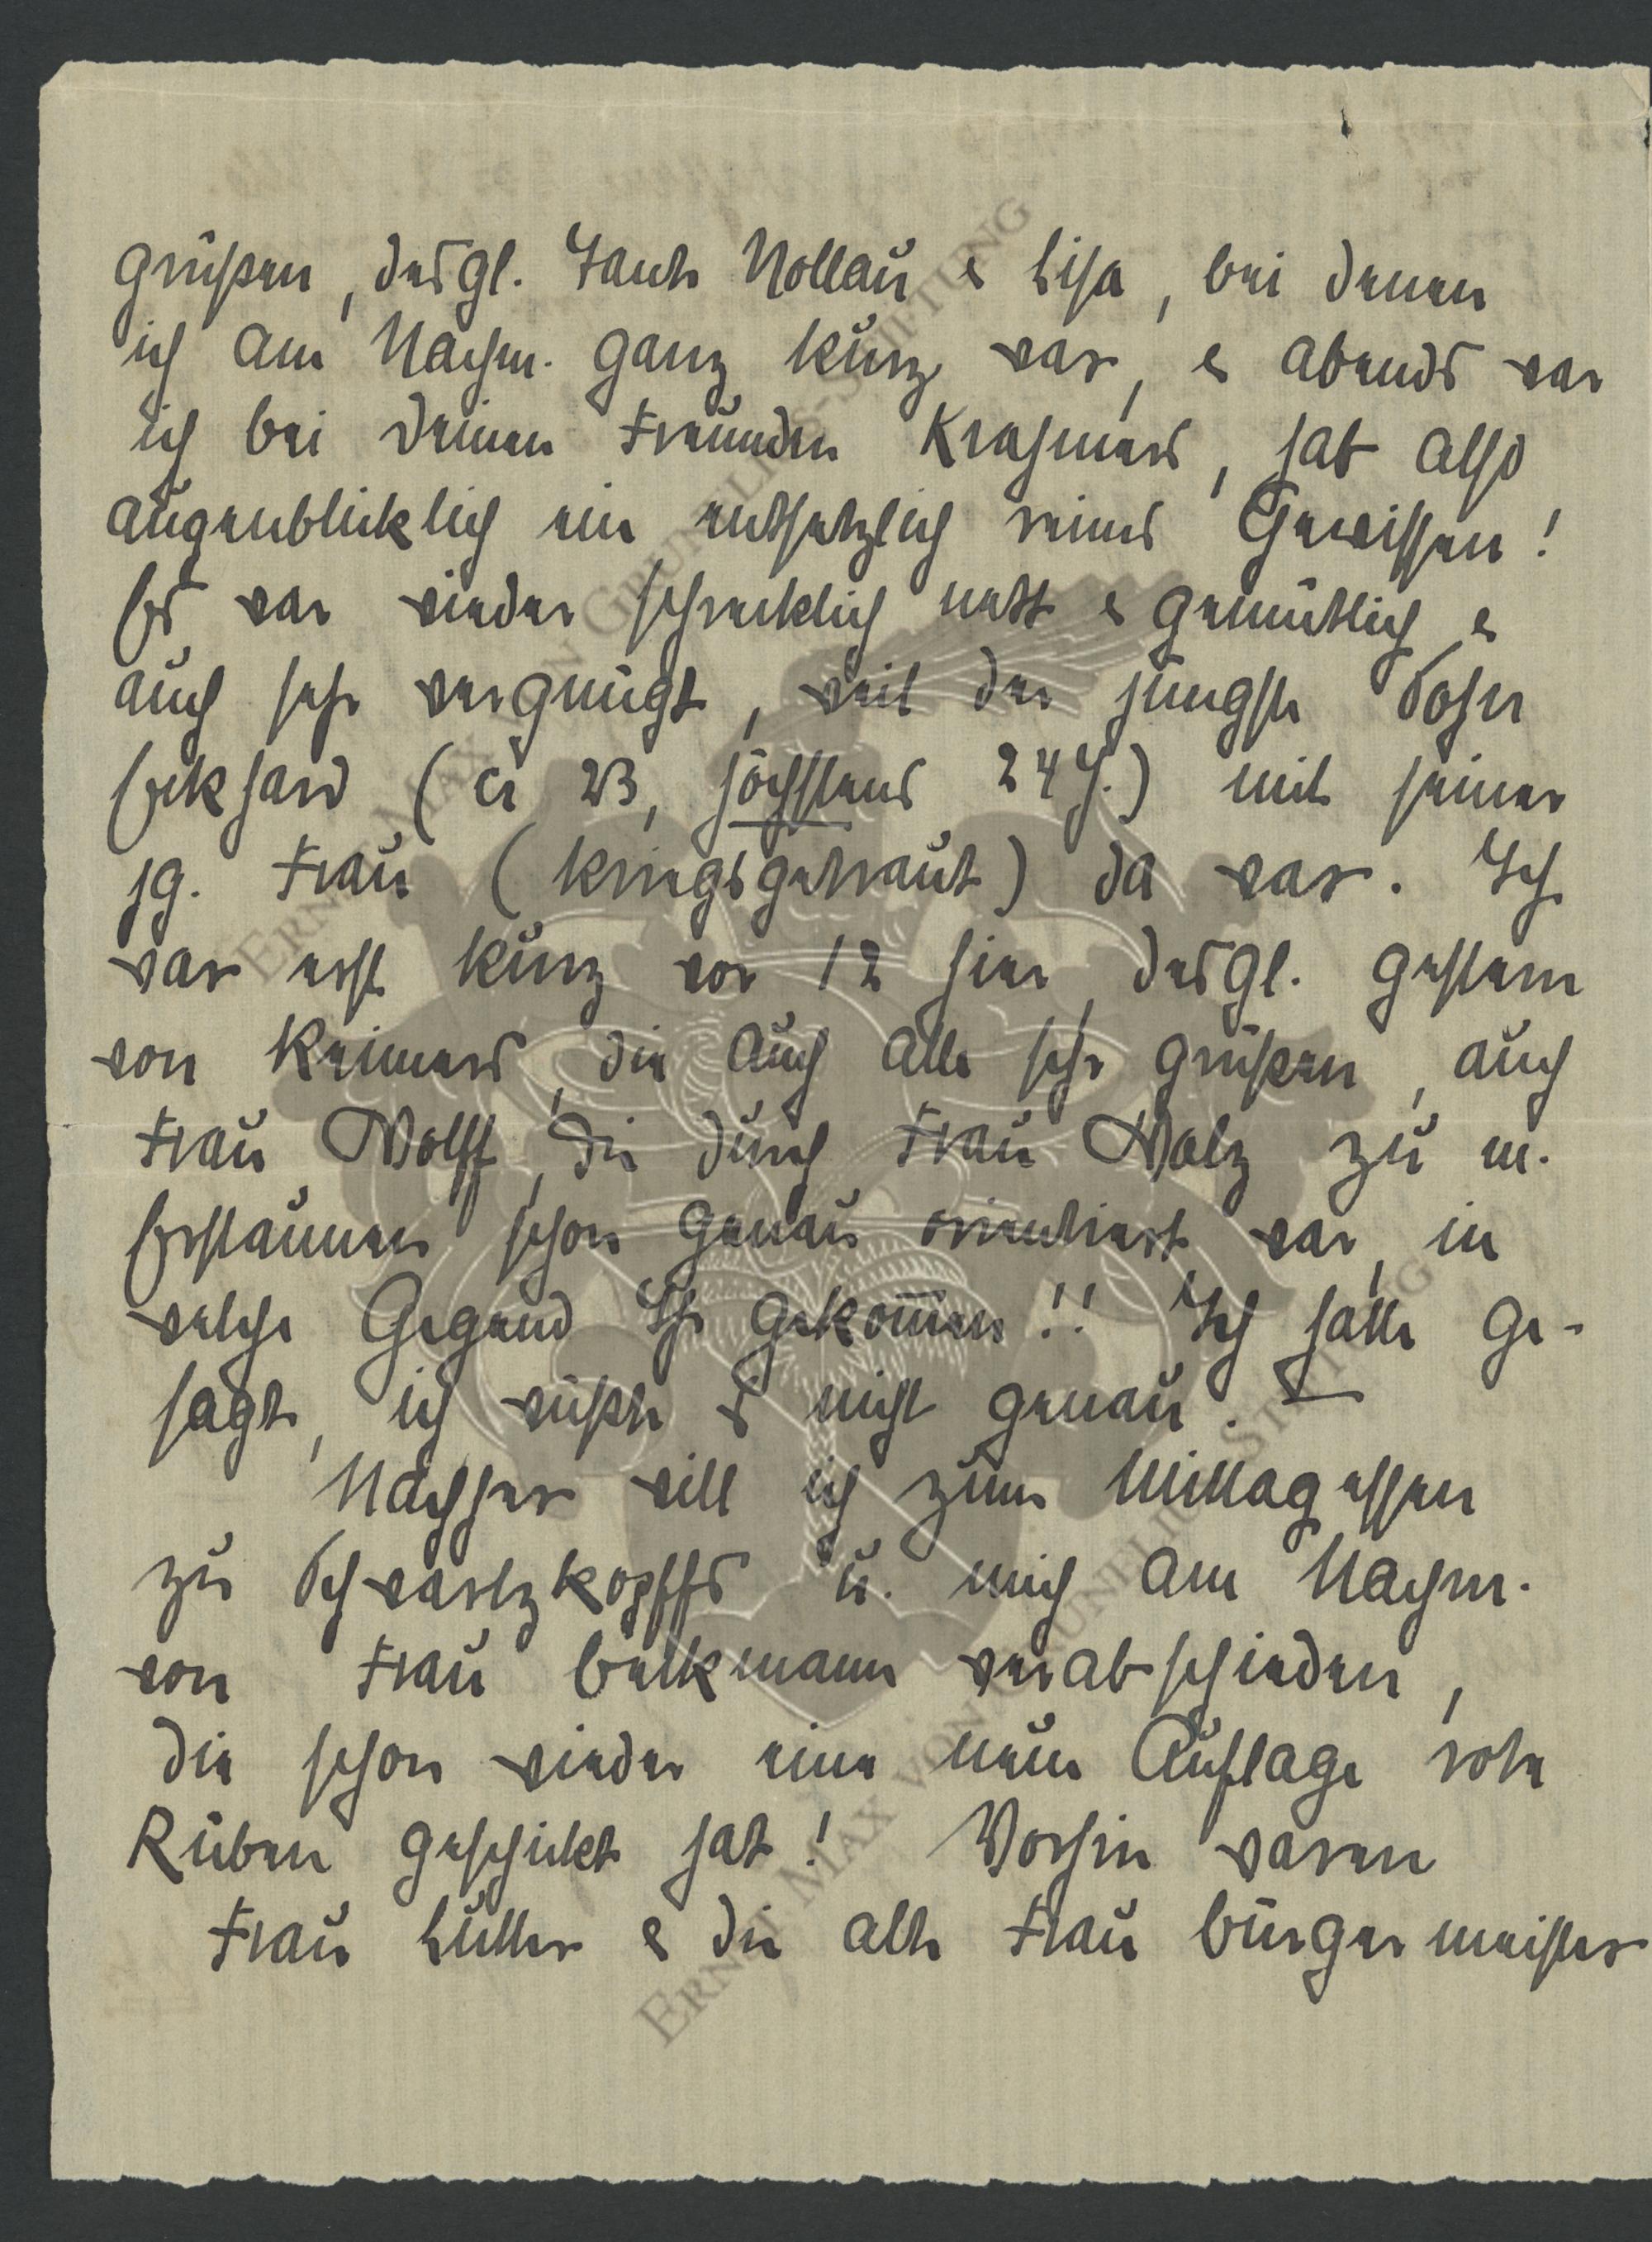 grüßen, desgl. Tante Nollau & Lisa, bei denen
ich am Nachm. ganz kurz war, & abends war
ich bei Deinen Freunden Krahmers, hab also
augenblicklich ein entsetzlich reines Gewissen!
Es war wieder schrecklich nett & gemütlich &
auch sehr vergnügt, weil der jüngste Sohn
Eckhard (ca 23, höchstens 24 J.) mit seiner
jg. Frau (kriegsgetraut) da war. Ich
war erst kurz vor 12 hier, desgl. gestern
von Reimers, die auch alle sehr grüßen, auch
Frau Wolff, die durch Frau Walz zu m.
Erstaunen schon genau orientiert war, in
welche Gegend Ihr gekommen!! Ich hätte ge-
sagt, ich wüßte es nicht genau. –
Nachher will ich zum Mittagessen
zu Schwartzkopffs u. mich am Nachm.
von Frau Beckmann verabschieden,
die schon wieder eine neue Auflage rote
Rüben geschickt hat! Vorhin waren
Frau Lüller & die alte Frau Bürgermeister
ERNST MAX VON GRUNELIUS-STIFTUNG
ERNST MAX VON GRUNELIUS-STIFTUNG